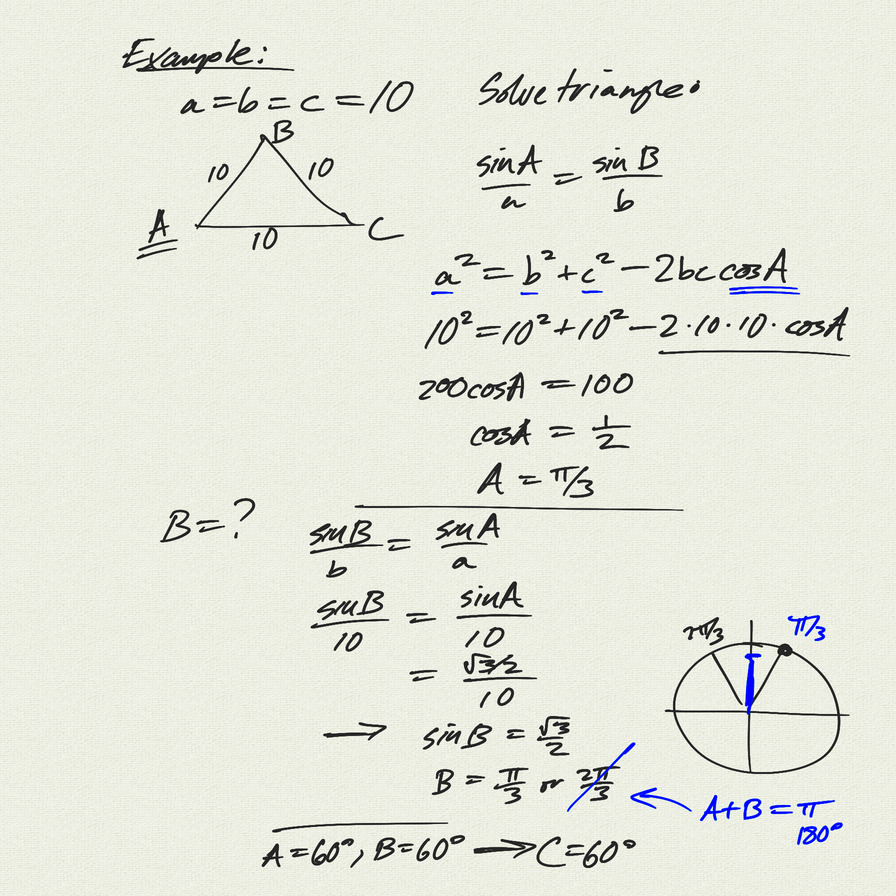 Example:
a = b = c = 10
Solve triangle.
B
10
10
A
10
C
sin A / a = sin B / b
a² = b² + c² - 2bc cos A
10² = 10² + 10² - 2·10·10·cos A
200 cos A = 100
cos A = 1/2
A = π/3
B = ?
sin B / b = sin A / a
sin B / 10 = sin A / 10
= √3/2 / 10
→ sin B = √3/2
B = π/3 or 2π/3
2π/3
π/3
A + B = π
180°
A = 60°, B = 60° → C = 60°